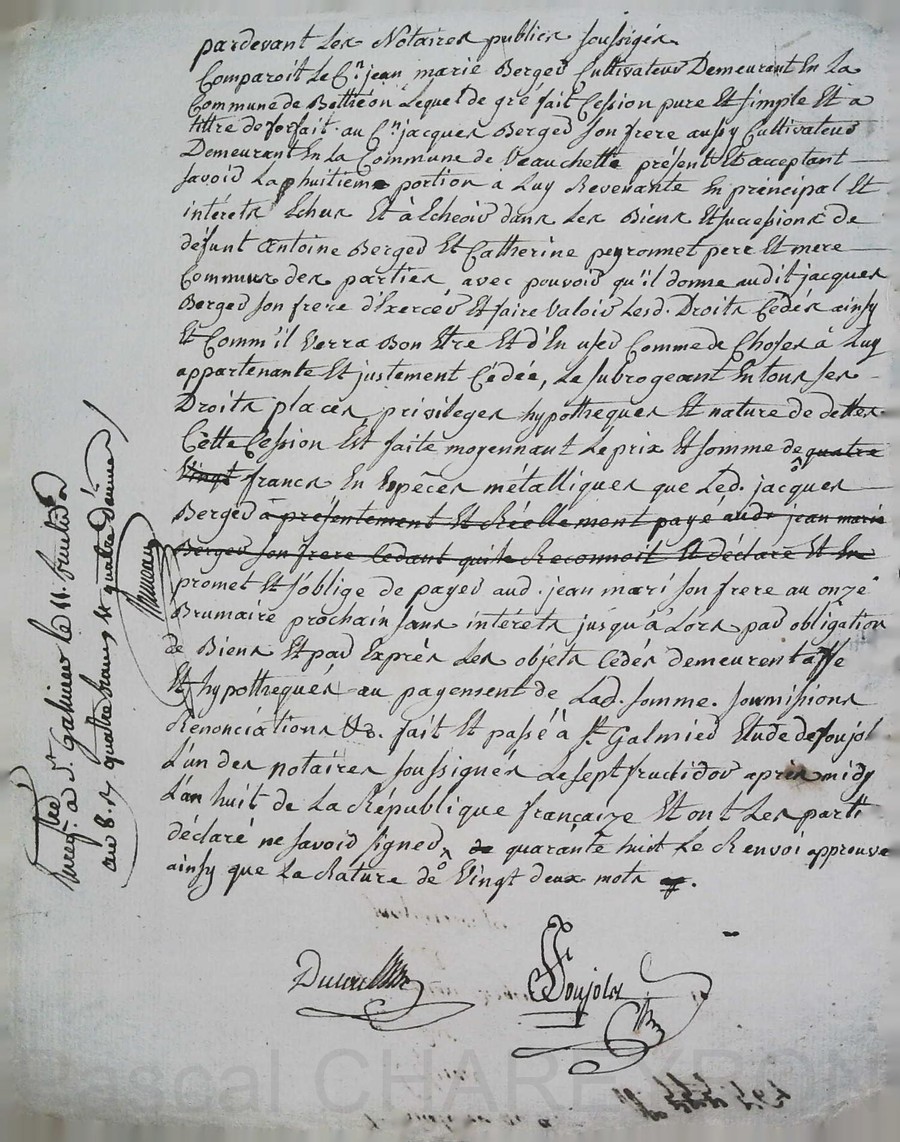 pardevant Les Notaires publics soussignés
Comparoit Le C.n jean marie Berger Cultivateur Demeurant En La
Commune de Bothéon Lequel de gré fait Cession pure Et simple Et a
tittre de forfait au C.n jacques Berger son frere aussy Cultivateur
Demeurant En La Commune de Veauchette présent Et acceptant
savoir La huitieme portion a Luy Revenante En principal Et
intérets Echus Et à Echeoir dans Les Biens Et successions de
défunt Antoine Berger Et Catherine peyronnet pere Et mere
Communs des parties, avec pouvoir qu'il donne audit jacques
Berger son frere d'Exercer Et faire Valoir Lesd. Droits Cédés ainsy
Et Comm'il Verra Bon Etre Et d'En user Comme de Choses à Luy
appartenante Et justement Cédée, Le subrogeant En tous ses
Droits places privileges hypotheques Et nature de dettes.
Cette Cession Est faite moyennant Le prix Et somme de quatre
Vingt francs En Espèces métalliques que Led. jacques
Berger a présentement Et Réellement payé aud. jean marie
Berger son frere Cedant qui le Reconnoit Et déclare Et En
promet Et s'oblige de payer aud. jean mari son frere au onze
Brumaire prochain sans intérets jusqu'à Lors par obligation
de Biens Et par Exprès Les objets Cédés demeurent affe
Et hypothequés au payement de Lad. somme. soumissions
Renonciations &c. fait Et passé à St. Galmier Etude de soujol
L'un des notaires soussignés Le sept fructidor après midy
L'an huit de La République française Et ont Les parti
déclaré ne savoir signer, de quarante huit Le Renvoi approuvé
ainsy que La Rature de Vingt deux mots
Soujol
Enreg.é à St. Galmier le 11. fructidor
an 8. quatre francs
Pascal CHAREYRON